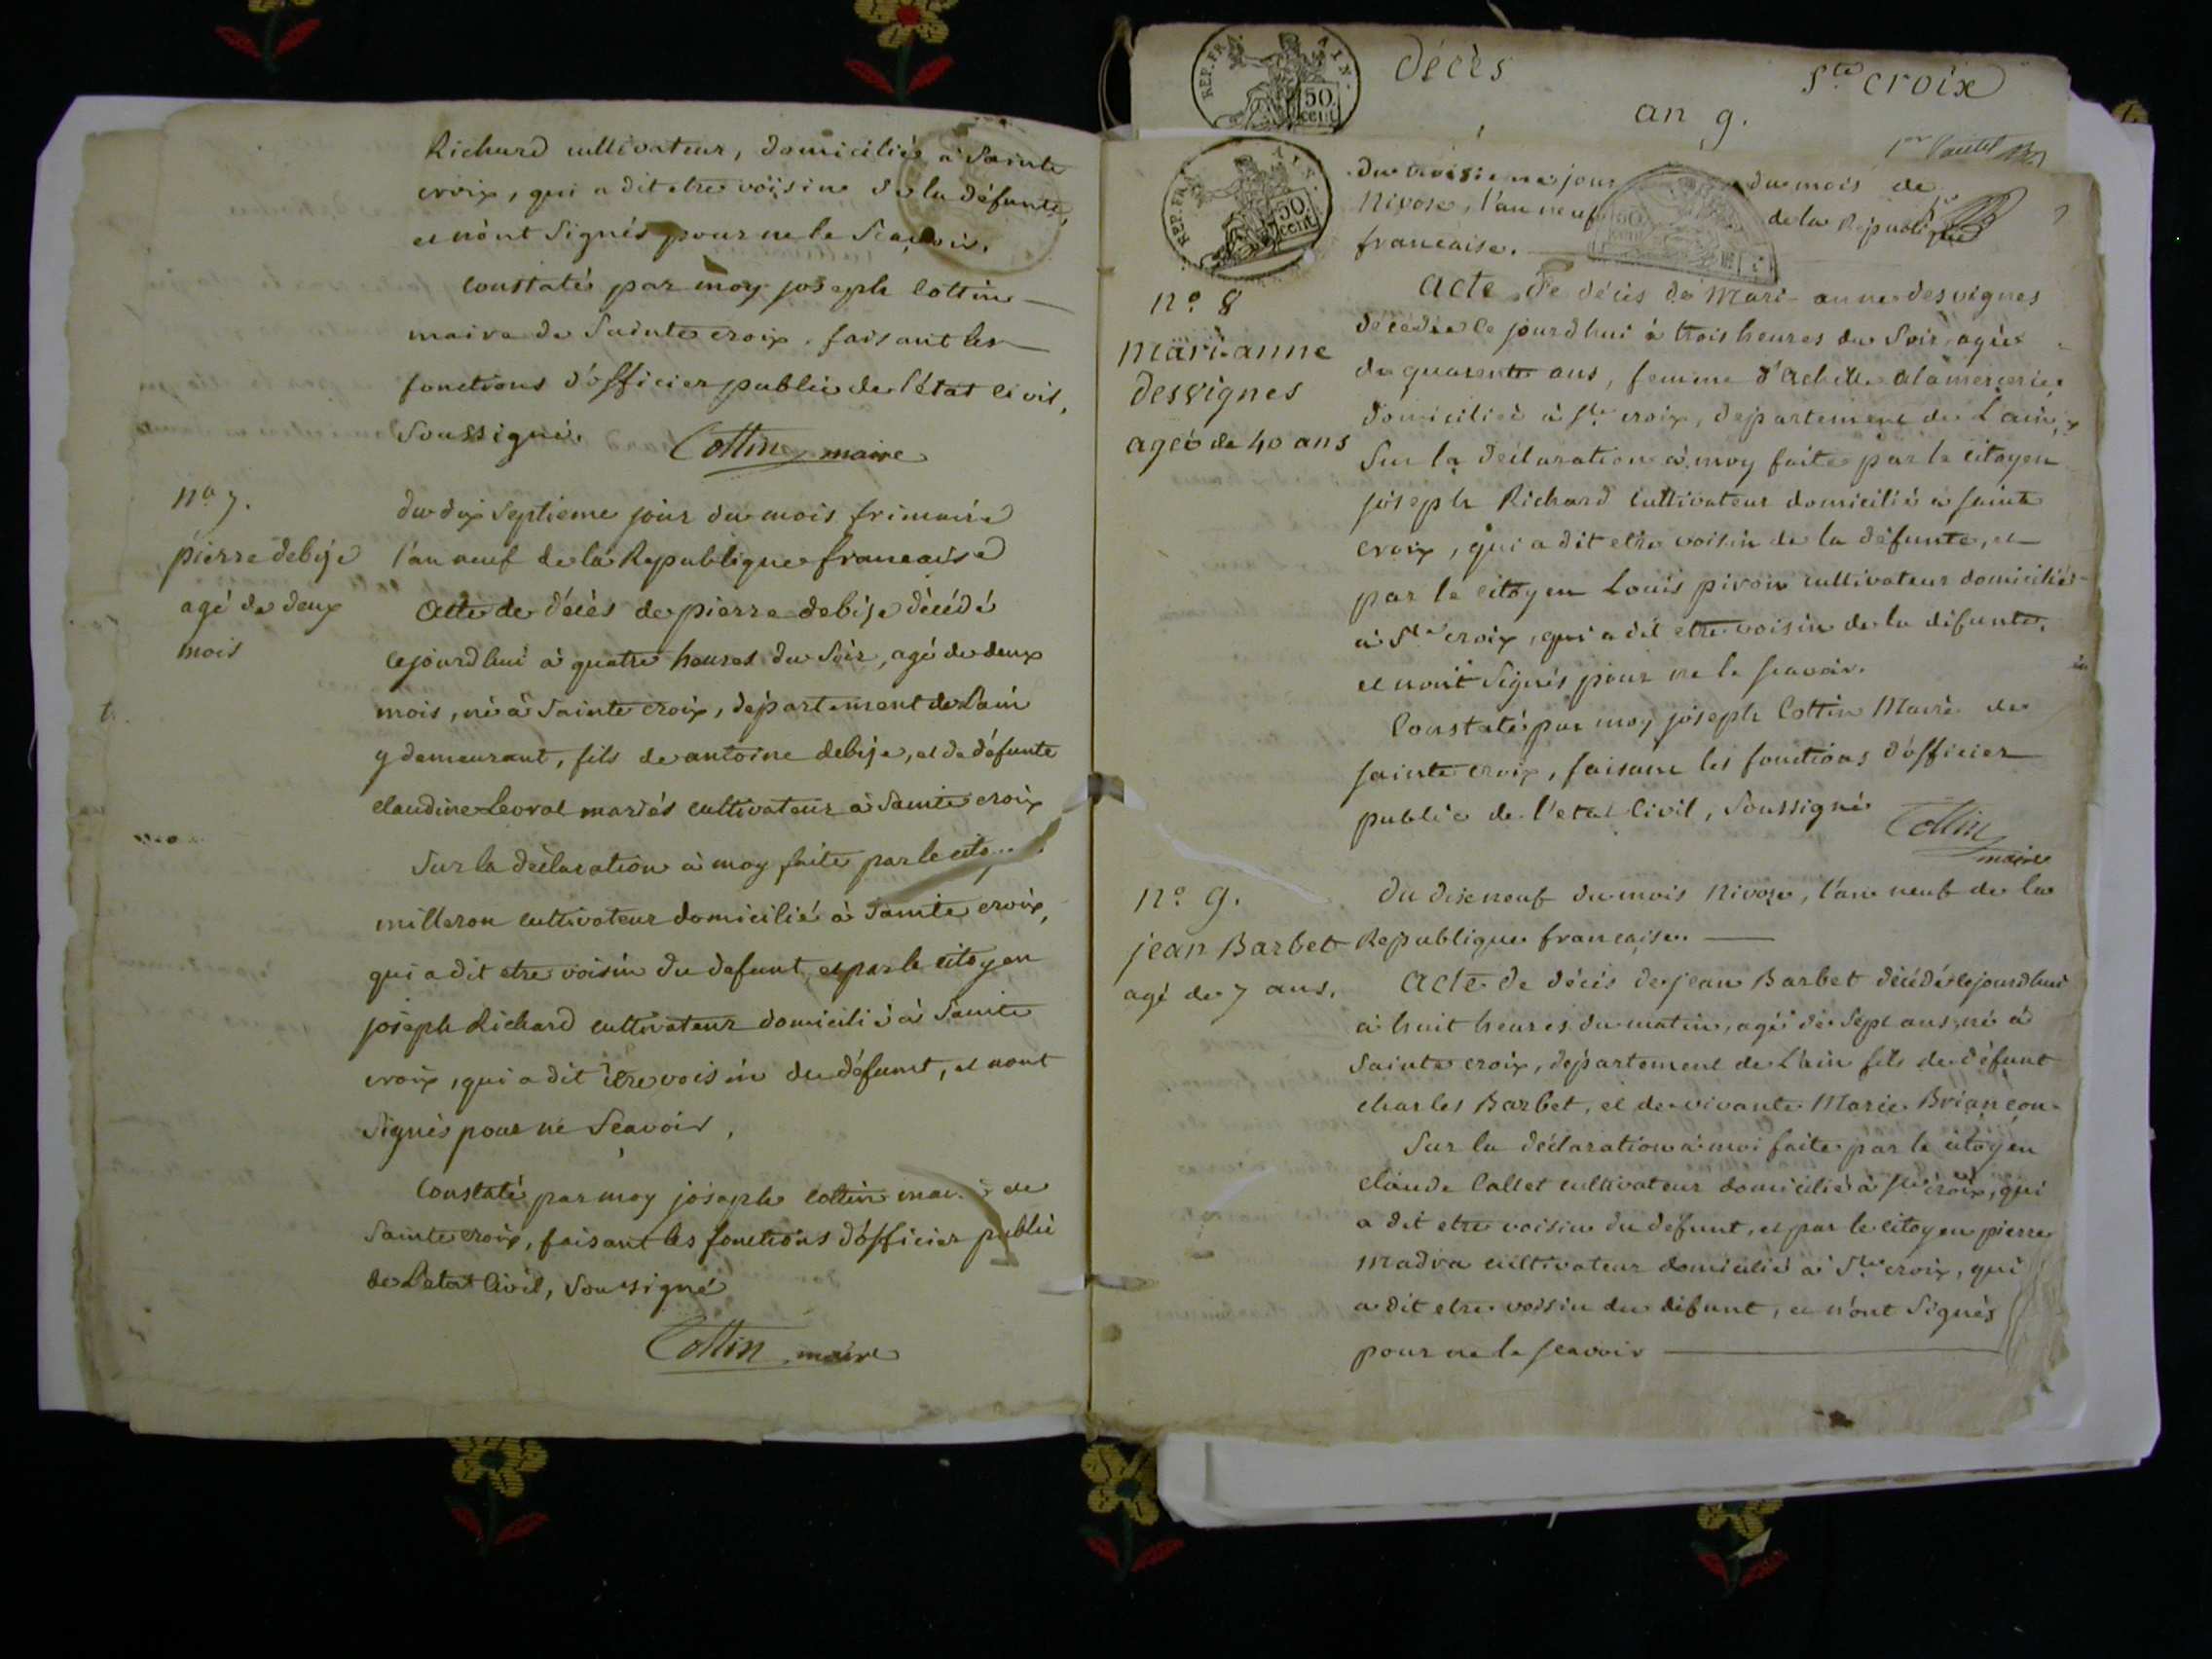 Richard cultivateur, domicilié à Sainte
croix, qui a dit etre voisin de la défunte,
et nónt Signés pour ne le Scavoir.
Constaté par moy joseph Cottin
maire de Sainte croix, faisant les
fonctions d'officier public de l'état civil,
Soussigné. Cottin maire
n° 7.
pierre debije
agé de deux
mois
du dix Septieme jour du mois frimaire
l'an neuf de la Republique francaise
Acte de décès de pierre debije décédé
cejourdhui à quatre heures du Soir, agé de deux
mois, né à Sainte croix, département de Lain
y demeurant, fils de antoine debije, et de défunte
claudine mariés cultivateur à Sainte croix
Sur la déclaration à moy faite par le
milleron cultivateur domicilié à Sainte croix,
qui a dit etre voisin du defunt, et par le citoyen
joseph Richard cultivateur domicilié à Sainte
croix, qui a dit être voisin du défunt, et nont
Signés pour ne Scavoir,
Constaté par moy joseph Cottin de
Sainte croix, faisant les fonctions d'officier public
de Letat Civil, Soussigné
Cottin maire
REP. FRA. AIN.
50 cent
décès
S.te croix
an 9.
REP. FRA. AIN.
50 cent
du troisieme jour du mois de
Nivose, l'an neuf de la Republique
francaise.
n° 8
mari-anne
desvignes
ageé de 40 ans
Acte de décès de Mari-anne desvignes
décédée ce jourdhui à trois heures du Soir, ageé
de quarente ans, femme d'achille alamercerie
domicilieé à S.te croix, departement de L'ain,
Sur la déclaration à moy faite par le citoyen
joseph Richard cultivateur domicilié à Sainte
croix, qui a dit etre voisin de la défunte, et
par le citoyen Louis pivoin cultivateur domicilié
à S.te croix, qui a dit etre voisin de la défunte,
et nont Signés pour ne le scavoir.
Constaté par moy joseph Cottin Maire de
Sainte croix, faisant les fonctions d'officier
public de l'etat Civil, Soussigné Cottin
maire
n° 9.
jean Barbet
agé de 7 ans.
du dixneuf du mois Nivose, l'an neuf de la
Republique francaise.
Acte de décès de jean Barbet décédé cejourdhui
à huit heures du matin, agé de Sept ans, né à
Sainte croix, département de L'ain fils de défunt
charles Barbet, et de vivante Marie Briancon
Sur la déclaration à moi faite par le citoyen
claude Callet cultivateur domicilié à S.te croix, qui
a dit etre voisin du défunt, et par le citoyen pierre
Madra cultivateur domicilié à S.te croix, qui
a dit etre voisin du défunt, et nónt Signés
pour ne le scavoir